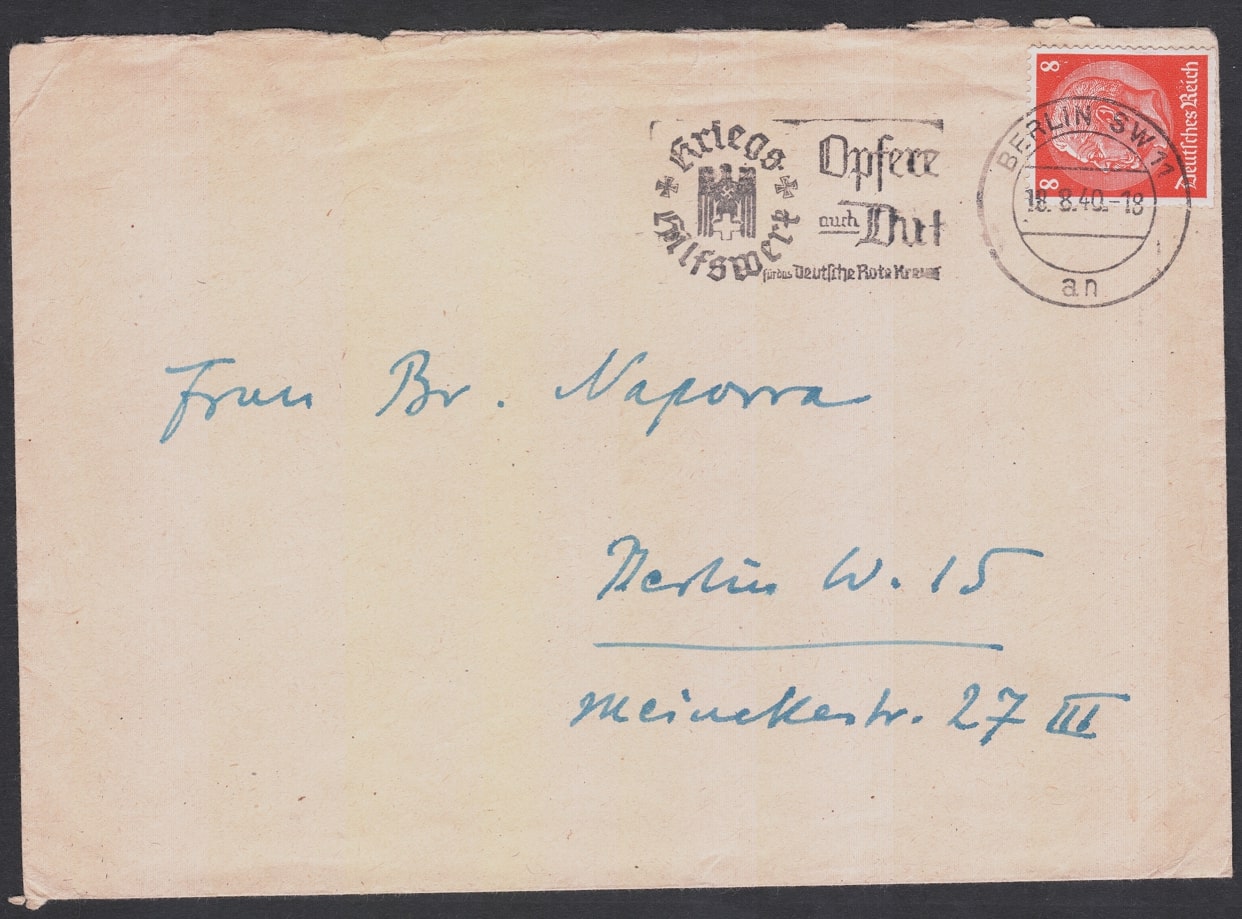 8 Deutsches Reich 8
BERLIN SW 11
18. 8.40.-18
an
Kriegs
Hilfswerk
Opfere
auch Du!
für das Deutsche Rote Kreuz
Frau Br. Naporra
Berlin W. 15
Meinekestr. 27 III